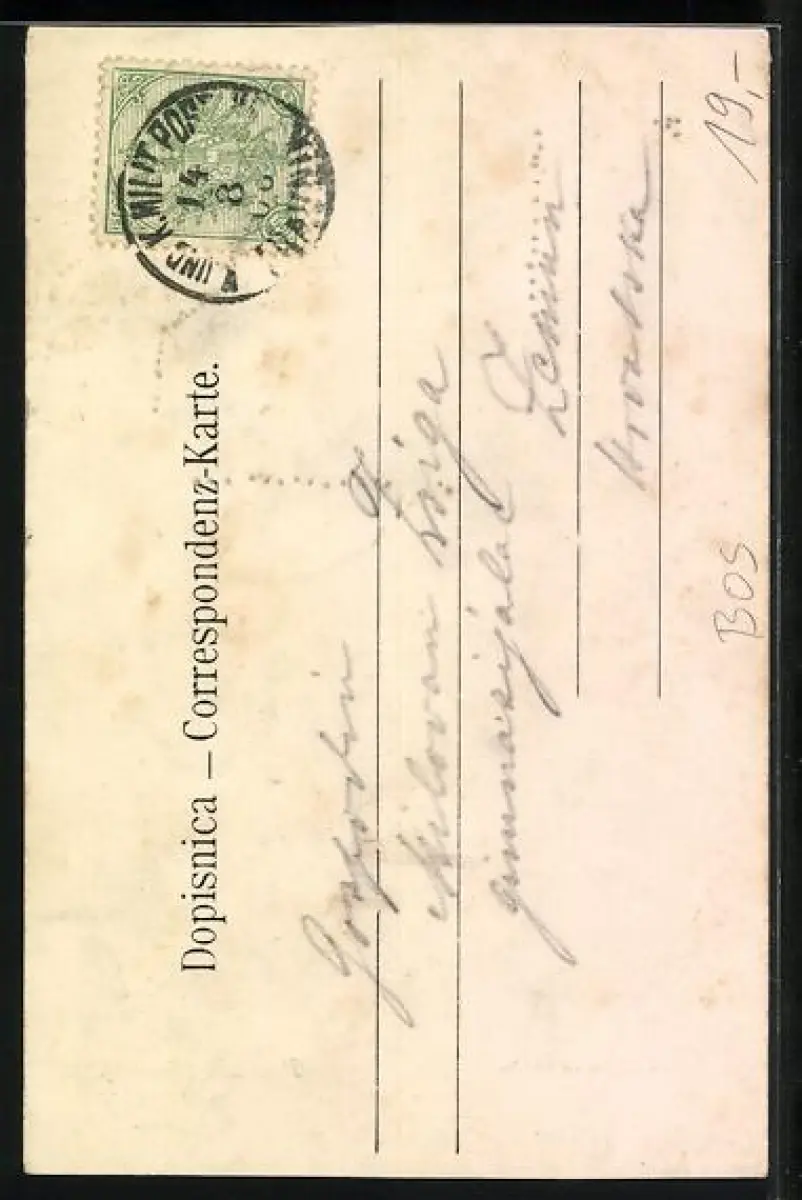 K. UND K. MILIT. POST
14
8
Dopisnica – Correspondenz-Karte.
Gospodin
Milovan
gimnazijalac
Zemun
Hrvatska
BOS
19,-